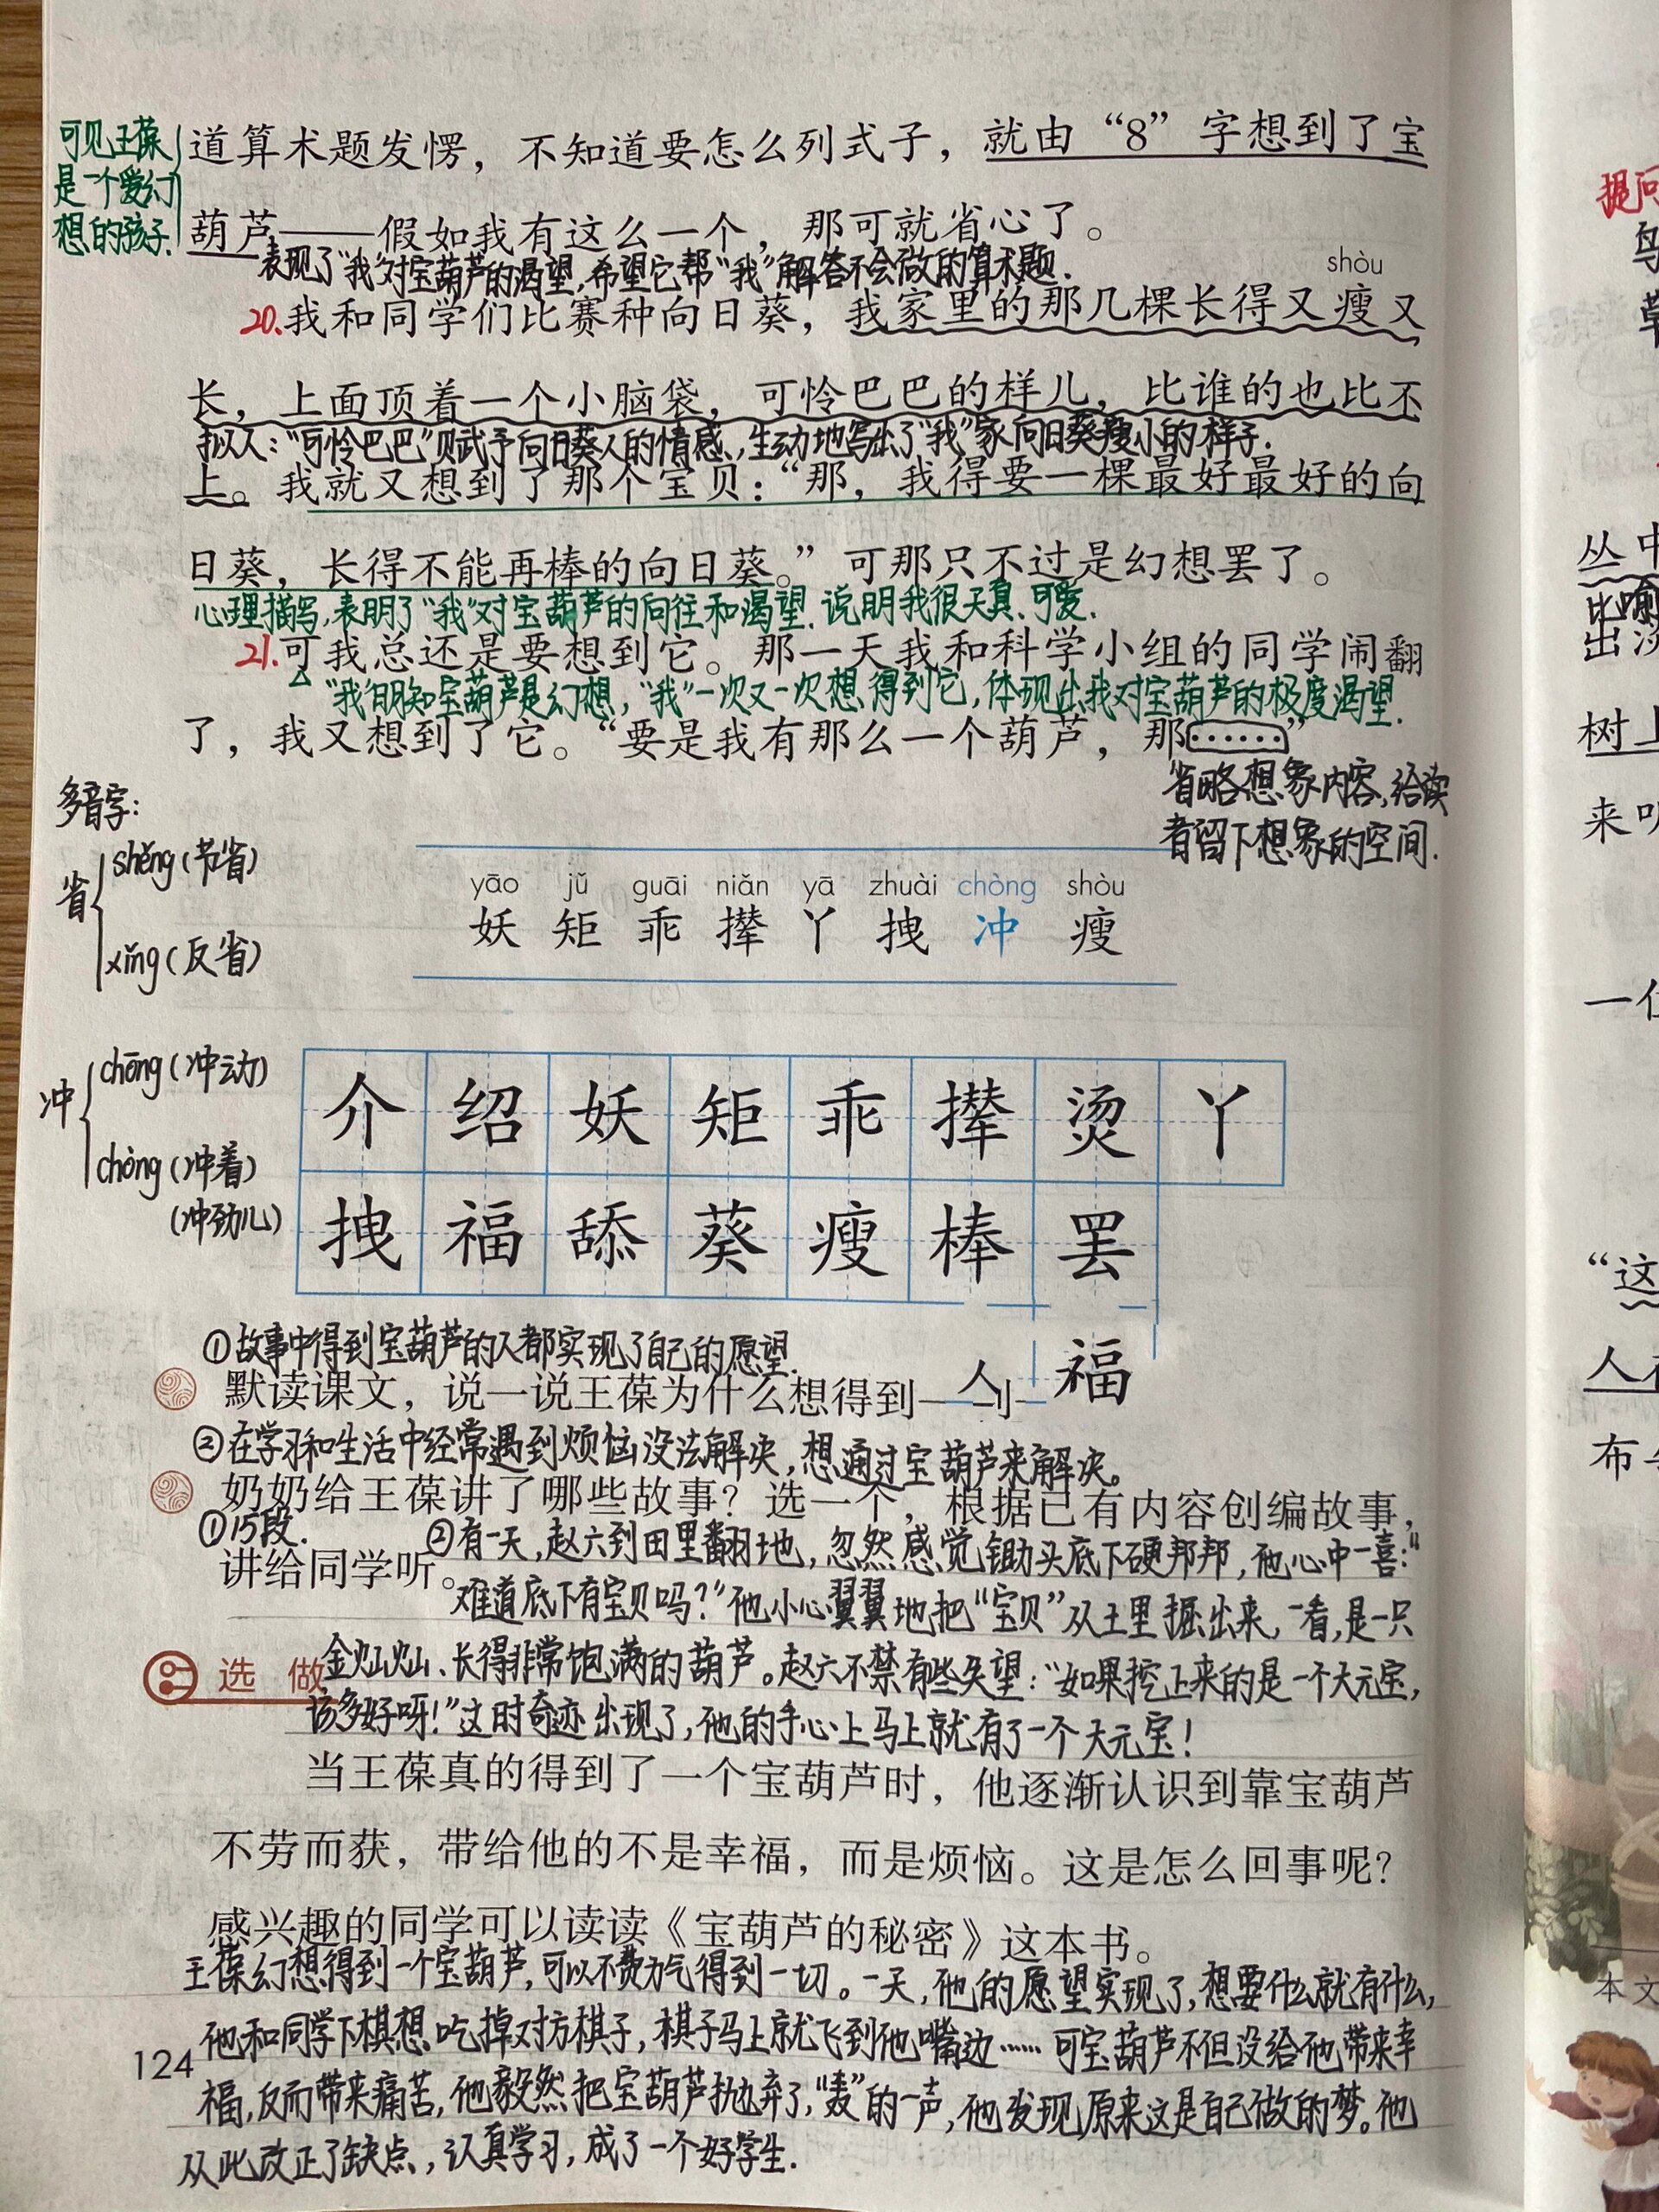 可见王葆
是一个爱幻
想的孩子.
道算术题发愣，不知道要怎么列式子，就由“8”字想到了宝
葫芦——假如我有这么一个，那可就省心了。
表现了“我”对宝葫芦的渴望,希望它帮“我”解答不会做的算术题.
shòu
20.我和同学们比赛种向日葵，我家里的那几棵长得又瘦又
长，上面顶着一个小脑袋，可怜巴巴的样儿，比谁的也比不
拟人:“可怜巴巴”赋予向日葵人的情感,生动地写出了“我”家向日葵瘦小的样子.
上。我就又想到了那个宝贝：“那，我得要一棵最好最好的向
日葵，长得不能再棒的向日葵。”可那只不过是幻想罢了。
心理描写,表明了“我”对宝葫芦的向往和渴望.说明我很天真、可爱.
21.可我总还是要想到它。那一天我和科学小组的同学闹翻
“我”明知宝葫芦是幻想,“我”一次又一次想得到它,体现出我对宝葫芦的极度渴望.
了，我又想到了它。“要是我有那么一个葫芦，那……”
省略想象内容,给读
者留下想象的空间.
多音字:
省
shěng(节省)
xǐng(反省)
yāo jǔ guāi niǎn yā zhuài chòng shòu
妖 矩 乖 撵 丫 拽 冲 瘦
冲
chōng(冲动)
chòng(冲着)
(冲劲儿)
介 绍 妖 矩 乖 撵 烫 丫
拽 福 舔 葵 瘦 棒 罢
①故事中得到宝葫芦的人都实现了自己的愿望.
福
默读课文，说一说王葆为什么想得到一
②在学习和生活中经常遇到烦恼没法解决,想通过宝葫芦来解决。
奶奶给王葆讲了哪些故事？选一个，根据已有内容创编故事，
①15段.
讲给同学听。
②有一天,赵六到田里翻地,忽然感觉锄头底下硬邦邦,他心中一喜:“
难道底下有宝贝吗?”他小心翼翼地把“宝贝”从土里掘出来,一看,是一只
选做
金灿灿、长得非常饱满的葫芦。赵六不禁有些失望:“如果挖上来的是一个大元宝,
该多好呀!”这时奇迹出现了,他的手心上马上就有了一个大元宝!
当王葆真的得到了一个宝葫芦时，他逐渐认识到靠宝葫芦
不劳而获，带给他的不是幸福，而是烦恼。这是怎么回事呢？
感兴趣的同学可以读读《宝葫芦的秘密》这本书。
王葆幻想得到一个宝葫芦,可以不费力气得到一切。一天,他的愿望实现了,想要什么就有什么,
他和同学下棋想吃掉对方棋子,棋子马上就飞到他嘴边……可宝葫芦不但没给他带来幸
124
福,反而带来痛苦,他毅然把宝葫芦抛弃了,“轰”的一声,他发现原来这是自己做的梦。他
从此改正了缺点,认真学习,成了一个好学生.
提问
丛中
比喻
树上
来
一
“这
人
布
本文